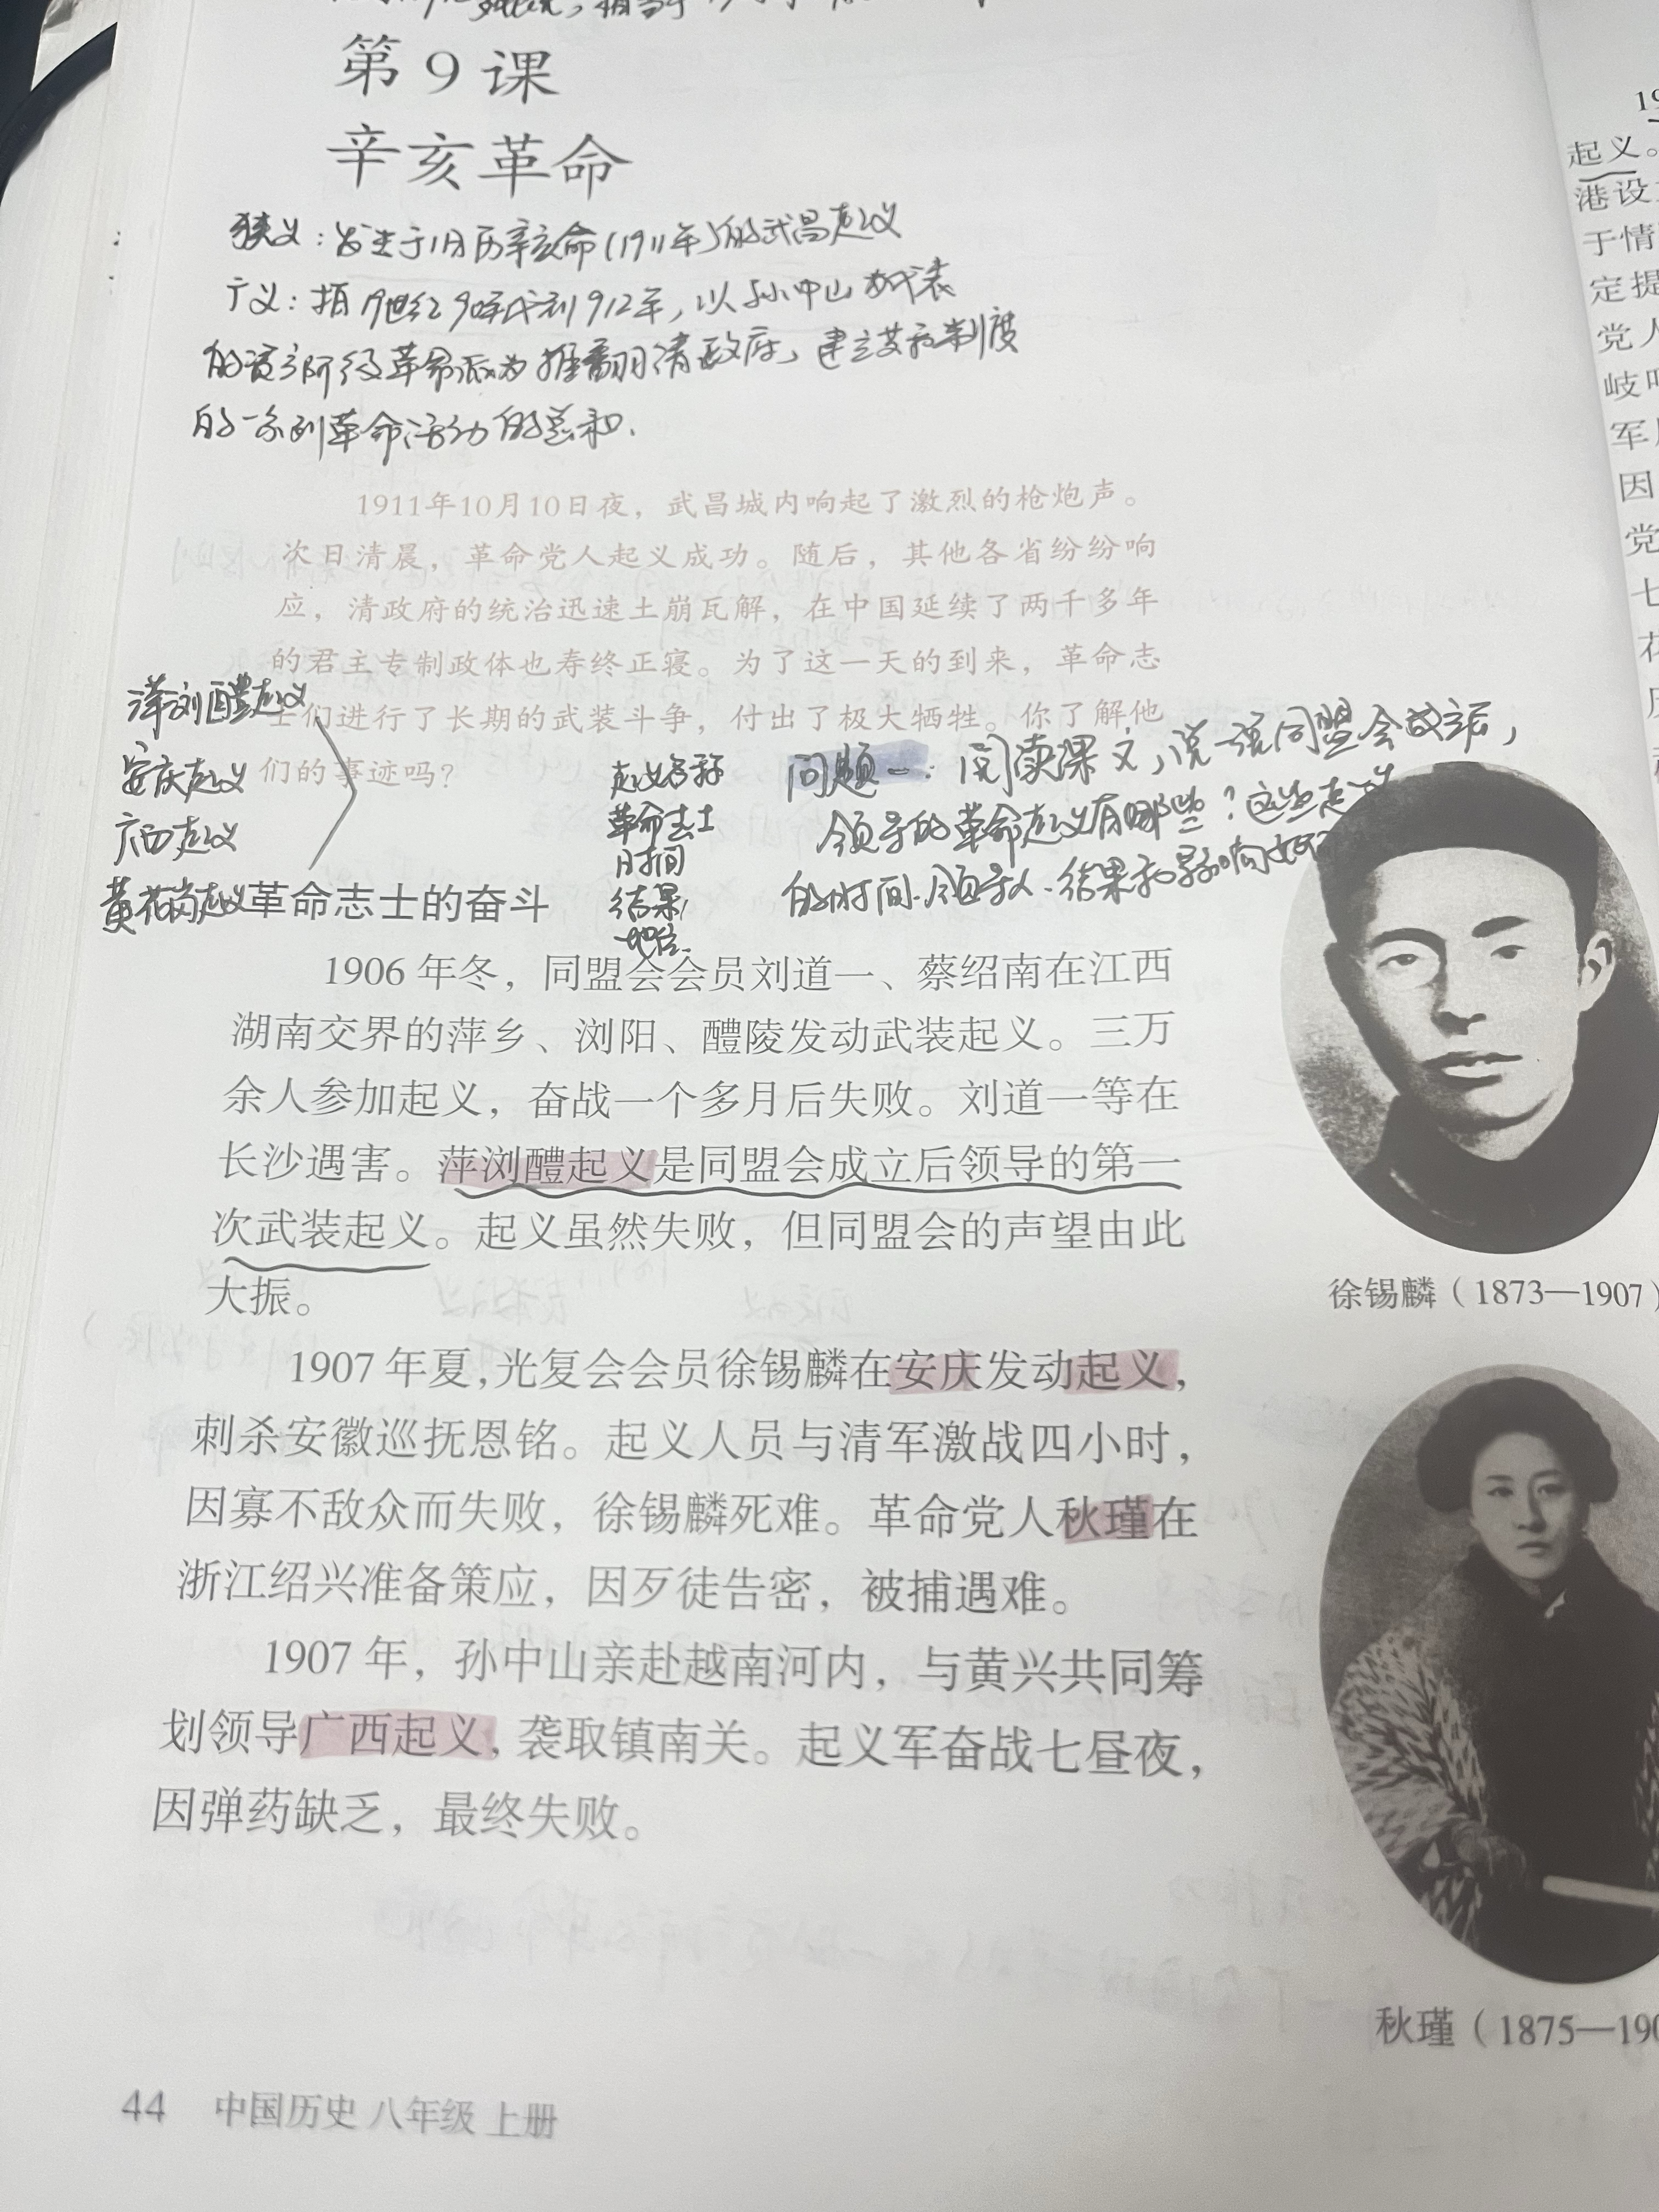 第9课
辛亥革命
狭义：发生于旧历辛亥命(1911年)的武昌起义
广义：指19世纪90年代到1912年，以孙中山为代表
的资产阶级革命派为推翻清政府，建立共和制度
的一系列革命活动的总和.
1911年10月10日夜，武昌城内响起了激烈的枪炮声。
次日清晨，革命党人起义成功。随后，其他各省纷纷响
应，清政府的统治迅速土崩瓦解，在中国延续了两千多年
的君主专制政体也寿终正寝。为了这一天的到来，革命志
士们进行了长期的武装斗争，付出了极大牺牲。你了解他
们的事迹吗？
萍浏醴起义
安庆起义
广西起义
黄花岗起义
起义名称
革命志士
时间
结果
地位
问题一：阅读课文，说一说同盟会成立后，
领导的革命起义有哪些？这些起义
的时间.领导人.结果和影响如何
革命志士的奋斗
1906年冬，同盟会会员刘道一、蔡绍南在江西
湖南交界的萍乡、浏阳、醴陵发动武装起义。三万
余人参加起义，奋战一个多月后失败。刘道一等在
长沙遇害。萍浏醴起义是同盟会成立后领导的第一
次武装起义。起义虽然失败，但同盟会的声望由此
大振。
1907年夏，光复会会员徐锡麟在安庆发动起义，
刺杀安徽巡抚恩铭。起义人员与清军激战四小时，
因寡不敌众而失败，徐锡麟死难。革命党人秋瑾在
浙江绍兴准备策应，因歹徒告密，被捕遇难。
1907年，孙中山亲赴越南河内，与黄兴共同筹
划领导广西起义，袭取镇南关。起义军奋战七昼夜，
因弹药缺乏，最终失败。
徐锡麟（1873—1907）
秋瑾（1875—190
44 中国历史 八年级 上册
19
起义。
港设
于情
定提
党人
岐
军
因
党
七